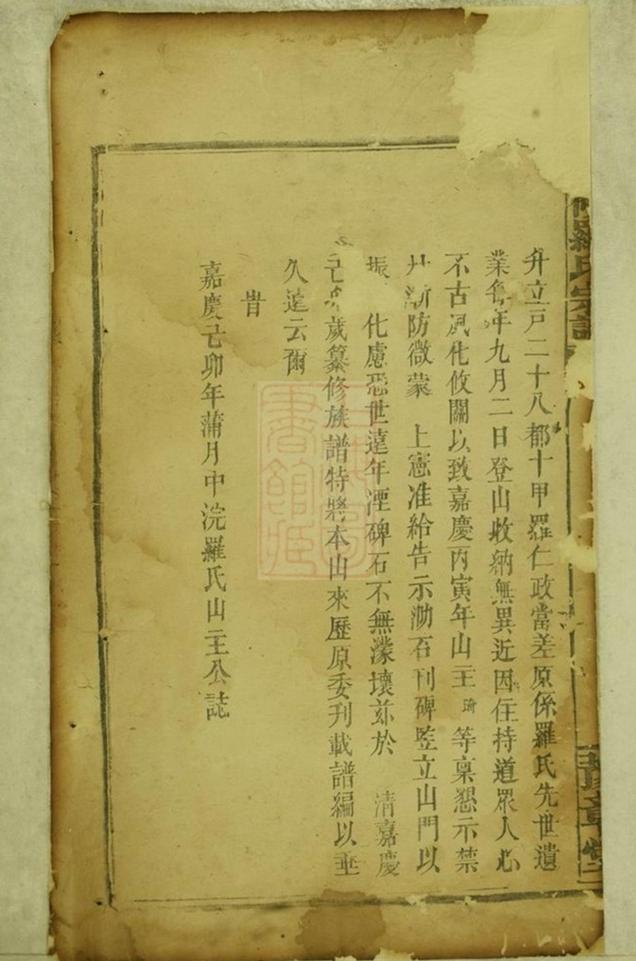 羅氏宗譜
升立戸二十八都十甲羅仁政當差原係羅氏先世遺
業每年九月二日登山收納無異近因住持道眾人心
不古風化攸關以致嘉慶丙寅年山主琦等稟懇示禁
杜漸防微蒙 上憲准給告示泐石刊碑竪立山門以
振 化慮恐世遠年湮碑石不無濛壞茲於 清嘉慶
己卯歲纂修族譜特將本山來歷原委刊載譜編以垂
久遠云爾
旹
嘉慶己卯年蒲月中浣羅氏山主公誌